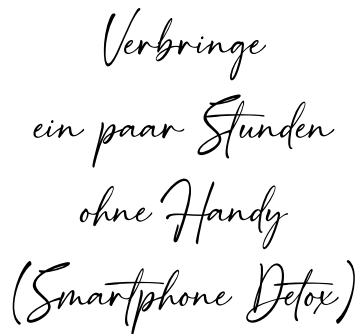 Verbringe
ein paar Stunden
ohne Handy
(Smartphone Detox)